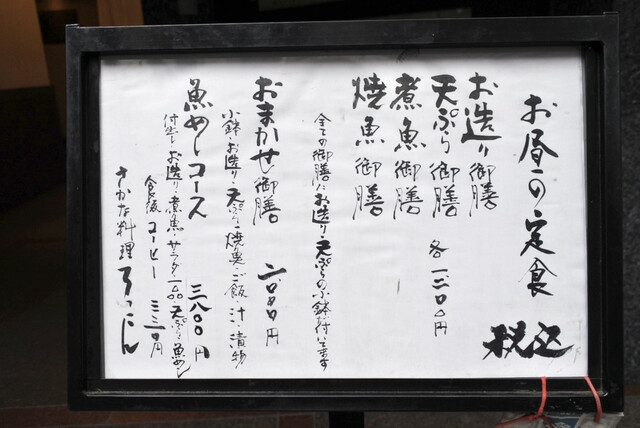 お昼の定食
税込
お造り御膳
天ぷら御膳 各一二〇〇円
煮魚御膳
焼魚御膳
全ての御膳にお造り天ぷらの小鉢付いてます
おまかせ御膳 二〇〇〇円
小鉢・お造り・天ぷら・焼魚・ご飯・汁・漬物
魚めしコース 三八〇〇円
付出し・お造り・煮魚・サラダ・一品・天ぷら・魚めし
食後 コーヒー 三三〇円
さかな料理